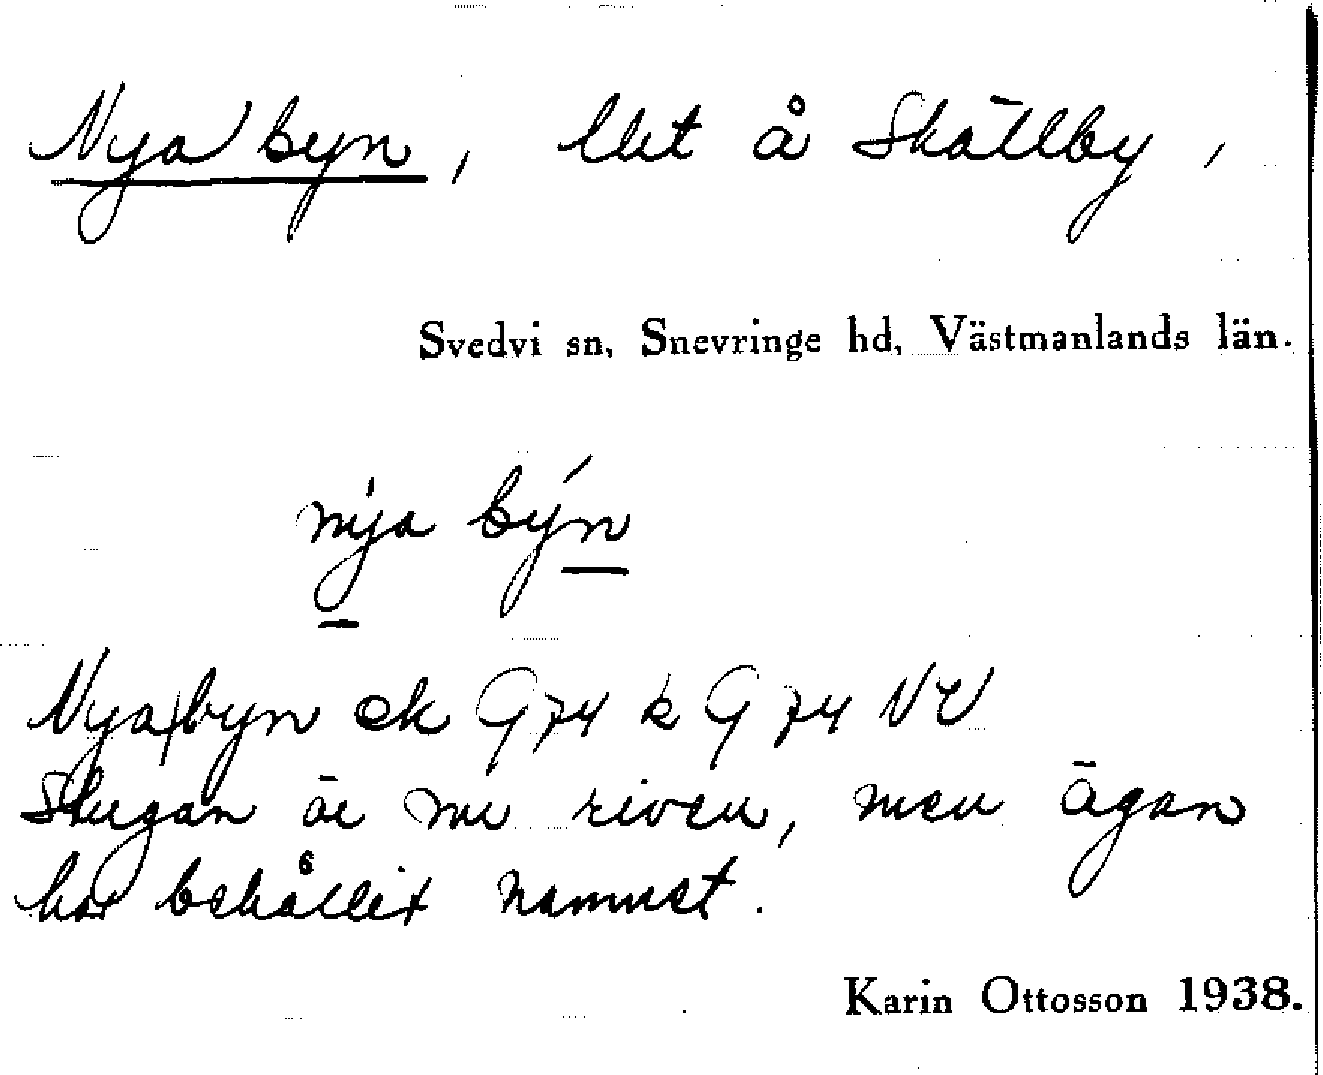 Nya byn, lht å Skällby,
Svedvi sn, Snevringe hd, Västmanlands län.
nýa býn
Nya|byn ek G 74 k G 74 NV
Stugan är nu riven, men ägan
har behållit namnet.
Karin Ottosson 1938.